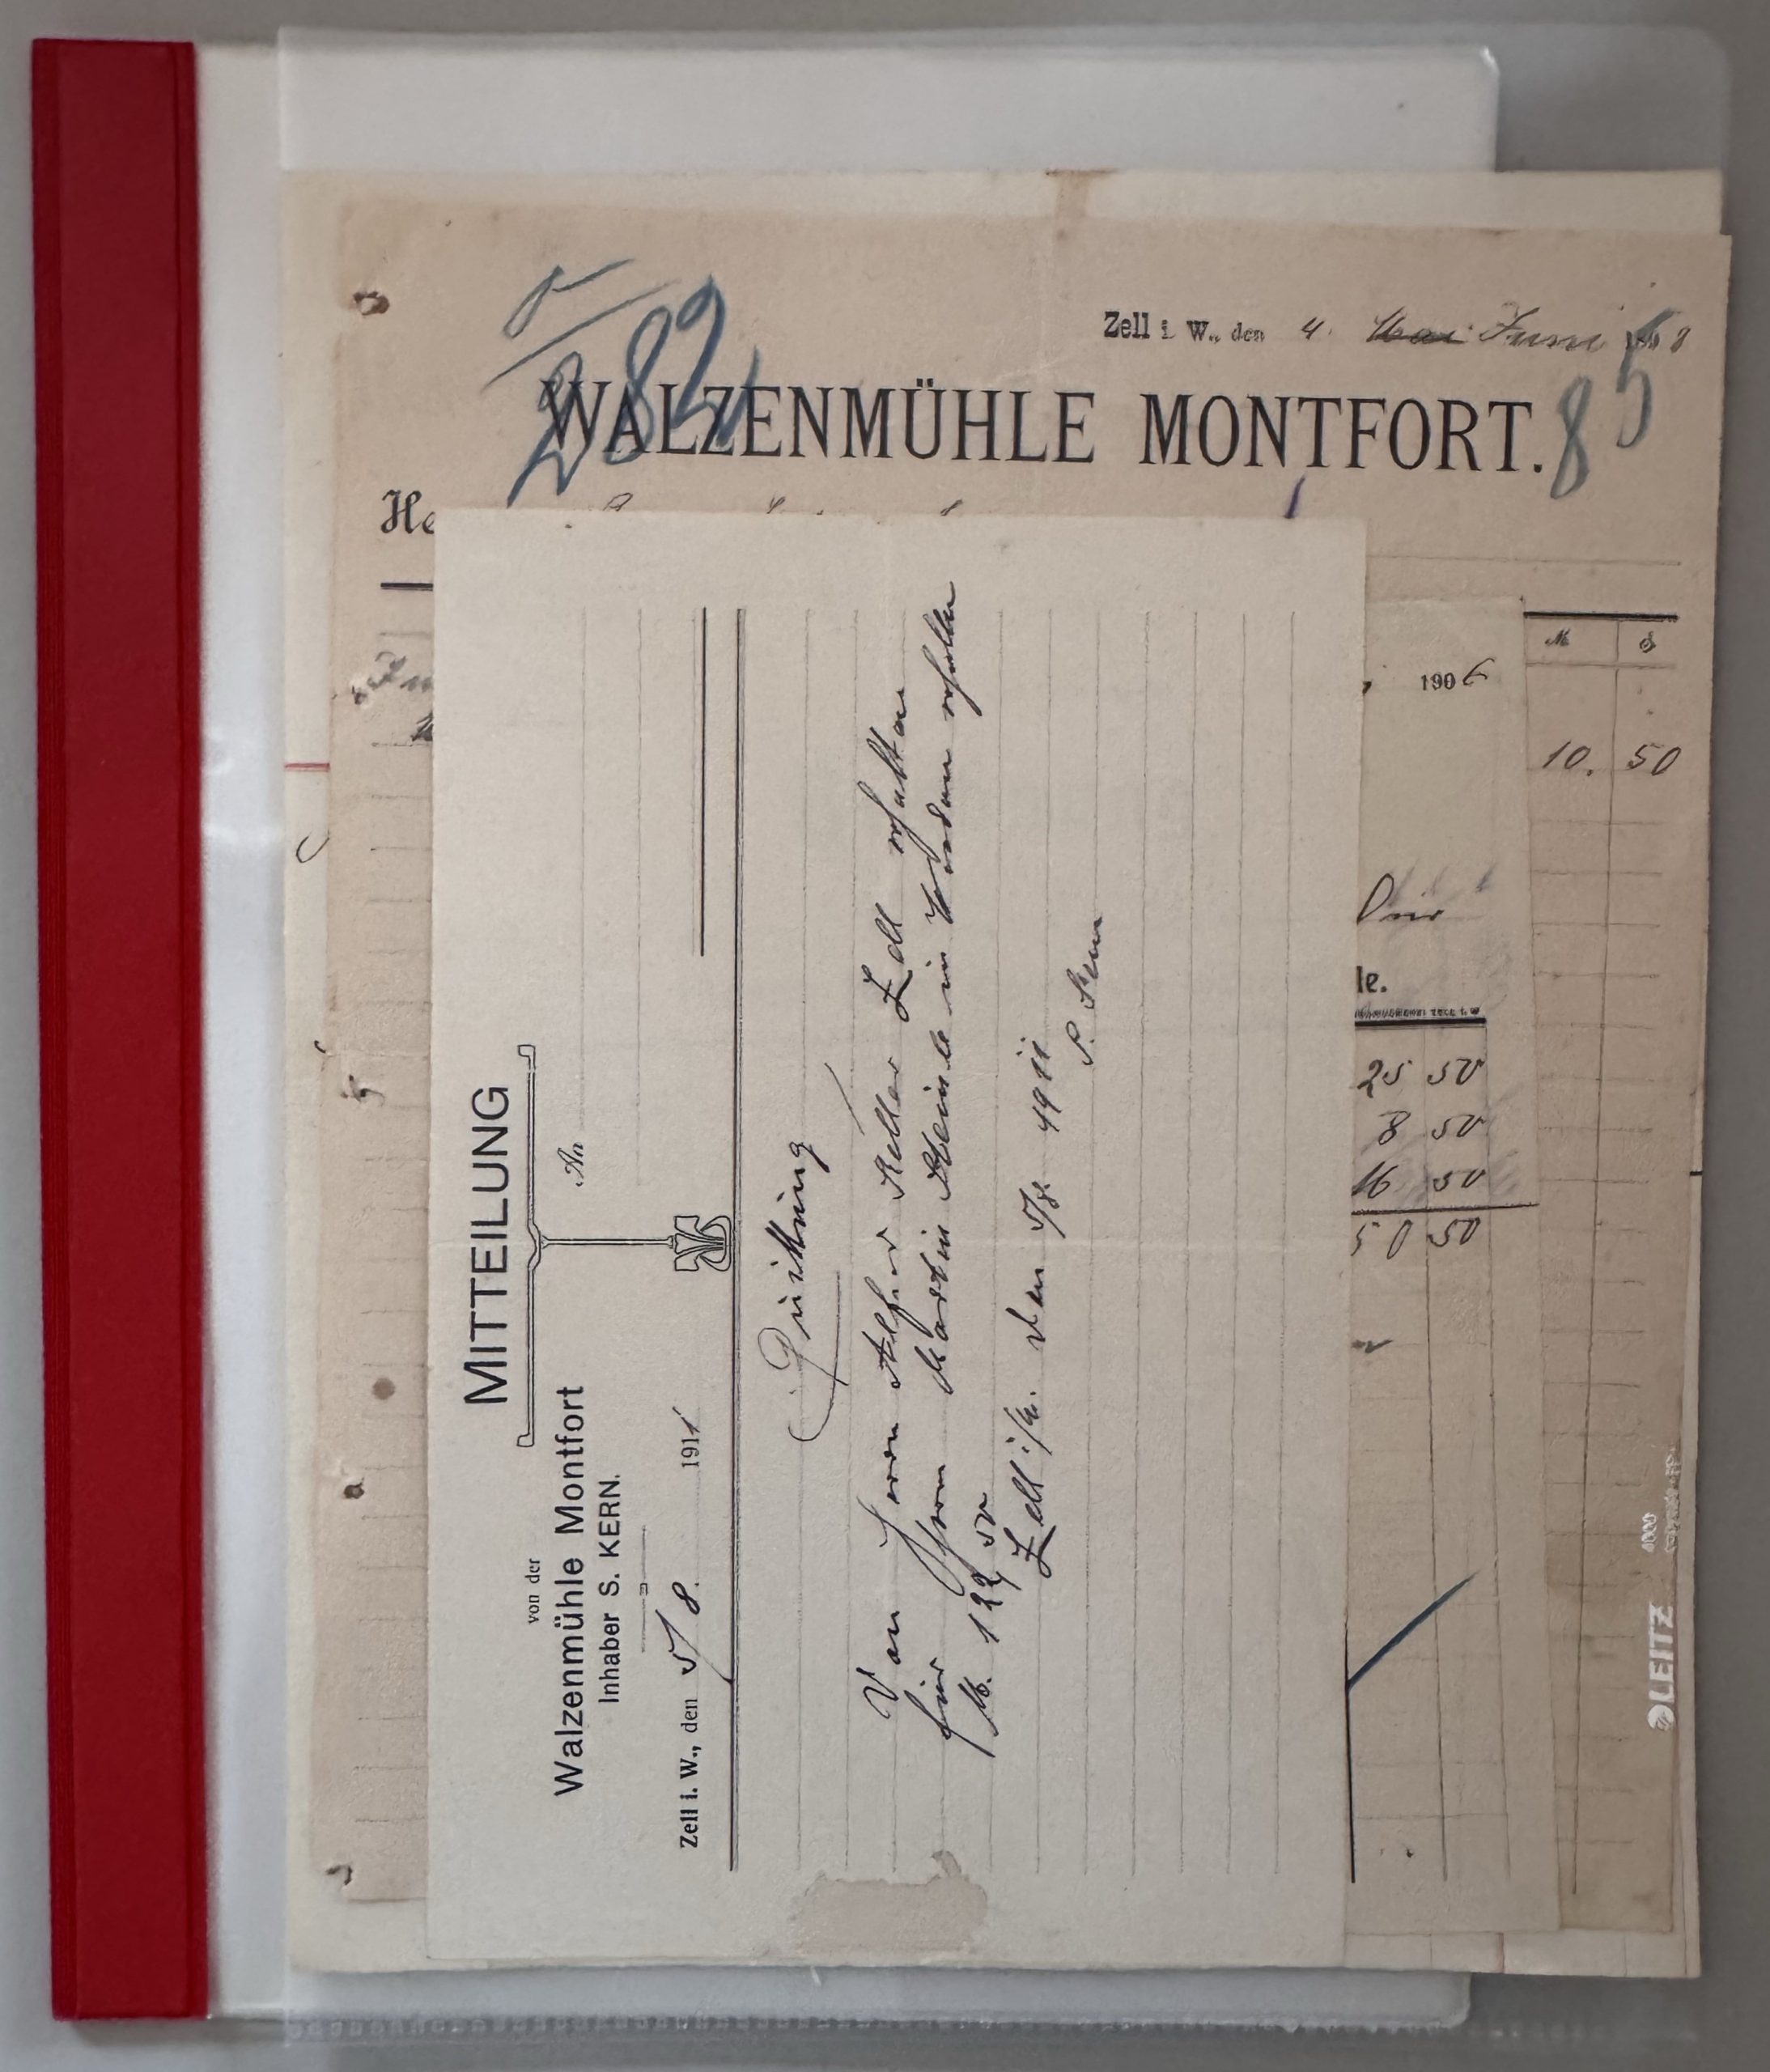 Zell i. W., den 4. Mai Juni 1898
WALZENMÜHLE MONTFORT.
85
282
He
M. ₰
10. 50
1906
le.
25 50
8 50
16 50
50 50
MITTEILUNG
von der
Walzenmühle Montfort
Inhaber S. KERN.
An
Zell i. W., den 5/8. 1911
Quittung
Von Herrn Alfred Keller Zell erhalten
für Herrn Martin in erhalten
M. 122,50
Zell i/W. den 5/8. 1911
S. Kern
LEITZ
4000